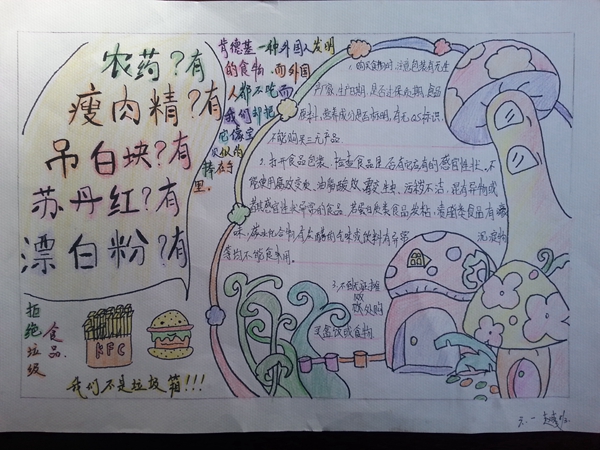 农药?有
瘦肉精?有
吊白块?有
苏丹红?有
漂白粉?有
拒绝垃圾
食品.
KFC
我们不是垃圾箱!!!
肯德基一种外国人发明
的食物.而外国
人都不吃而
我们却把
它像宝
贝似的
捧在手
里.
1.购买食物时,注意包装有无生
产厂家,生产日期,是否过保质期,食品
原料,营养成分是否标明,有无QS标识,
不能购买三无产品.
2.打开食品包装,检查食品是否有它应有的感官性状.不
能使用腐败变质,油脂酸败,霉变,生虫,污秽不洁,混有异物或
者其他感官性状异常的食品,若蛋白质类食品发粘,渍脂类食品有
味,碳水化合物有发酵的气味或饮料有异常沉淀物
等均不能食用.
3.不到无证摊
贩处购
买盒饭或食物